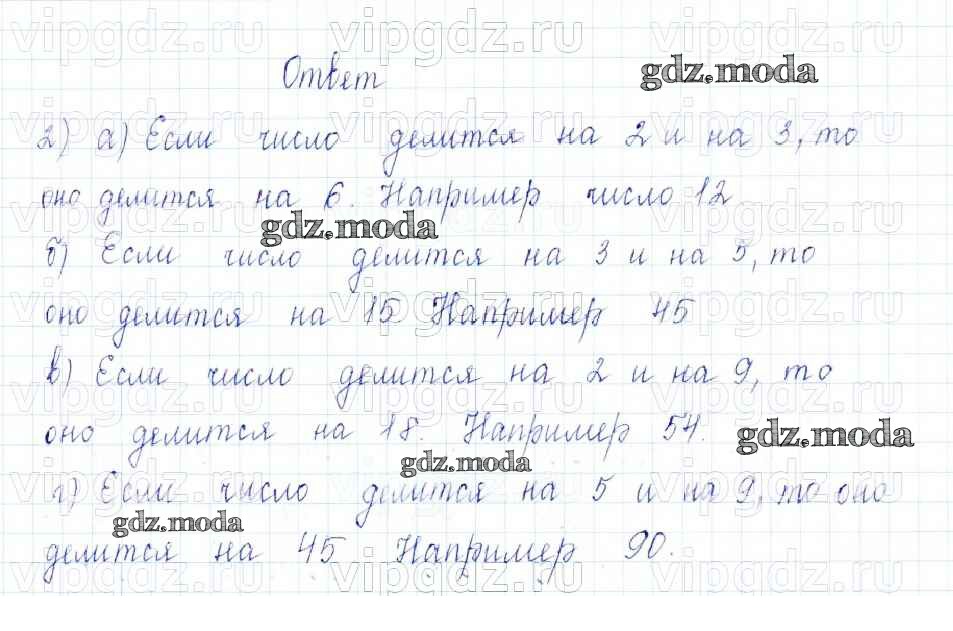 Ответ
2) а) Если число делится на 2 и на 3, то
оно делится на 6. Например число 12
б) Если число делится на 3 и на 5, то
оно делится на 15 Например 45
в) Если число делится на 2 и на 9, то
оно делится на 18. Например 54.
г) Если число делится на 5 и на 9, то оно
делится на 45 Например 90.
gdz.moda
gdz.moda
gdz.moda
gdz.moda
gdz.moda
vipgdz.ru